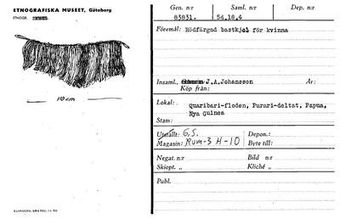 ETNOGRAFISKA MUSEET, Göteborg
10 cm
Gen. nr
Saml. nr
Dep. nr
83831.
54.18.4
Föremål: Rödfärgad bastkjol för kvinna
Insaml. J.A.Johansson
År:
Köp från:
Lokal: Quaribari-floden, Purari-deltat, Papua,
Nya guinea
Stam:
Utställt: G.S.
Depon.:
Magasin: Rum-3 H-10
Byte till:
Negat. nr
Bild nr
Skiopt. „
Kliché „
Publ.